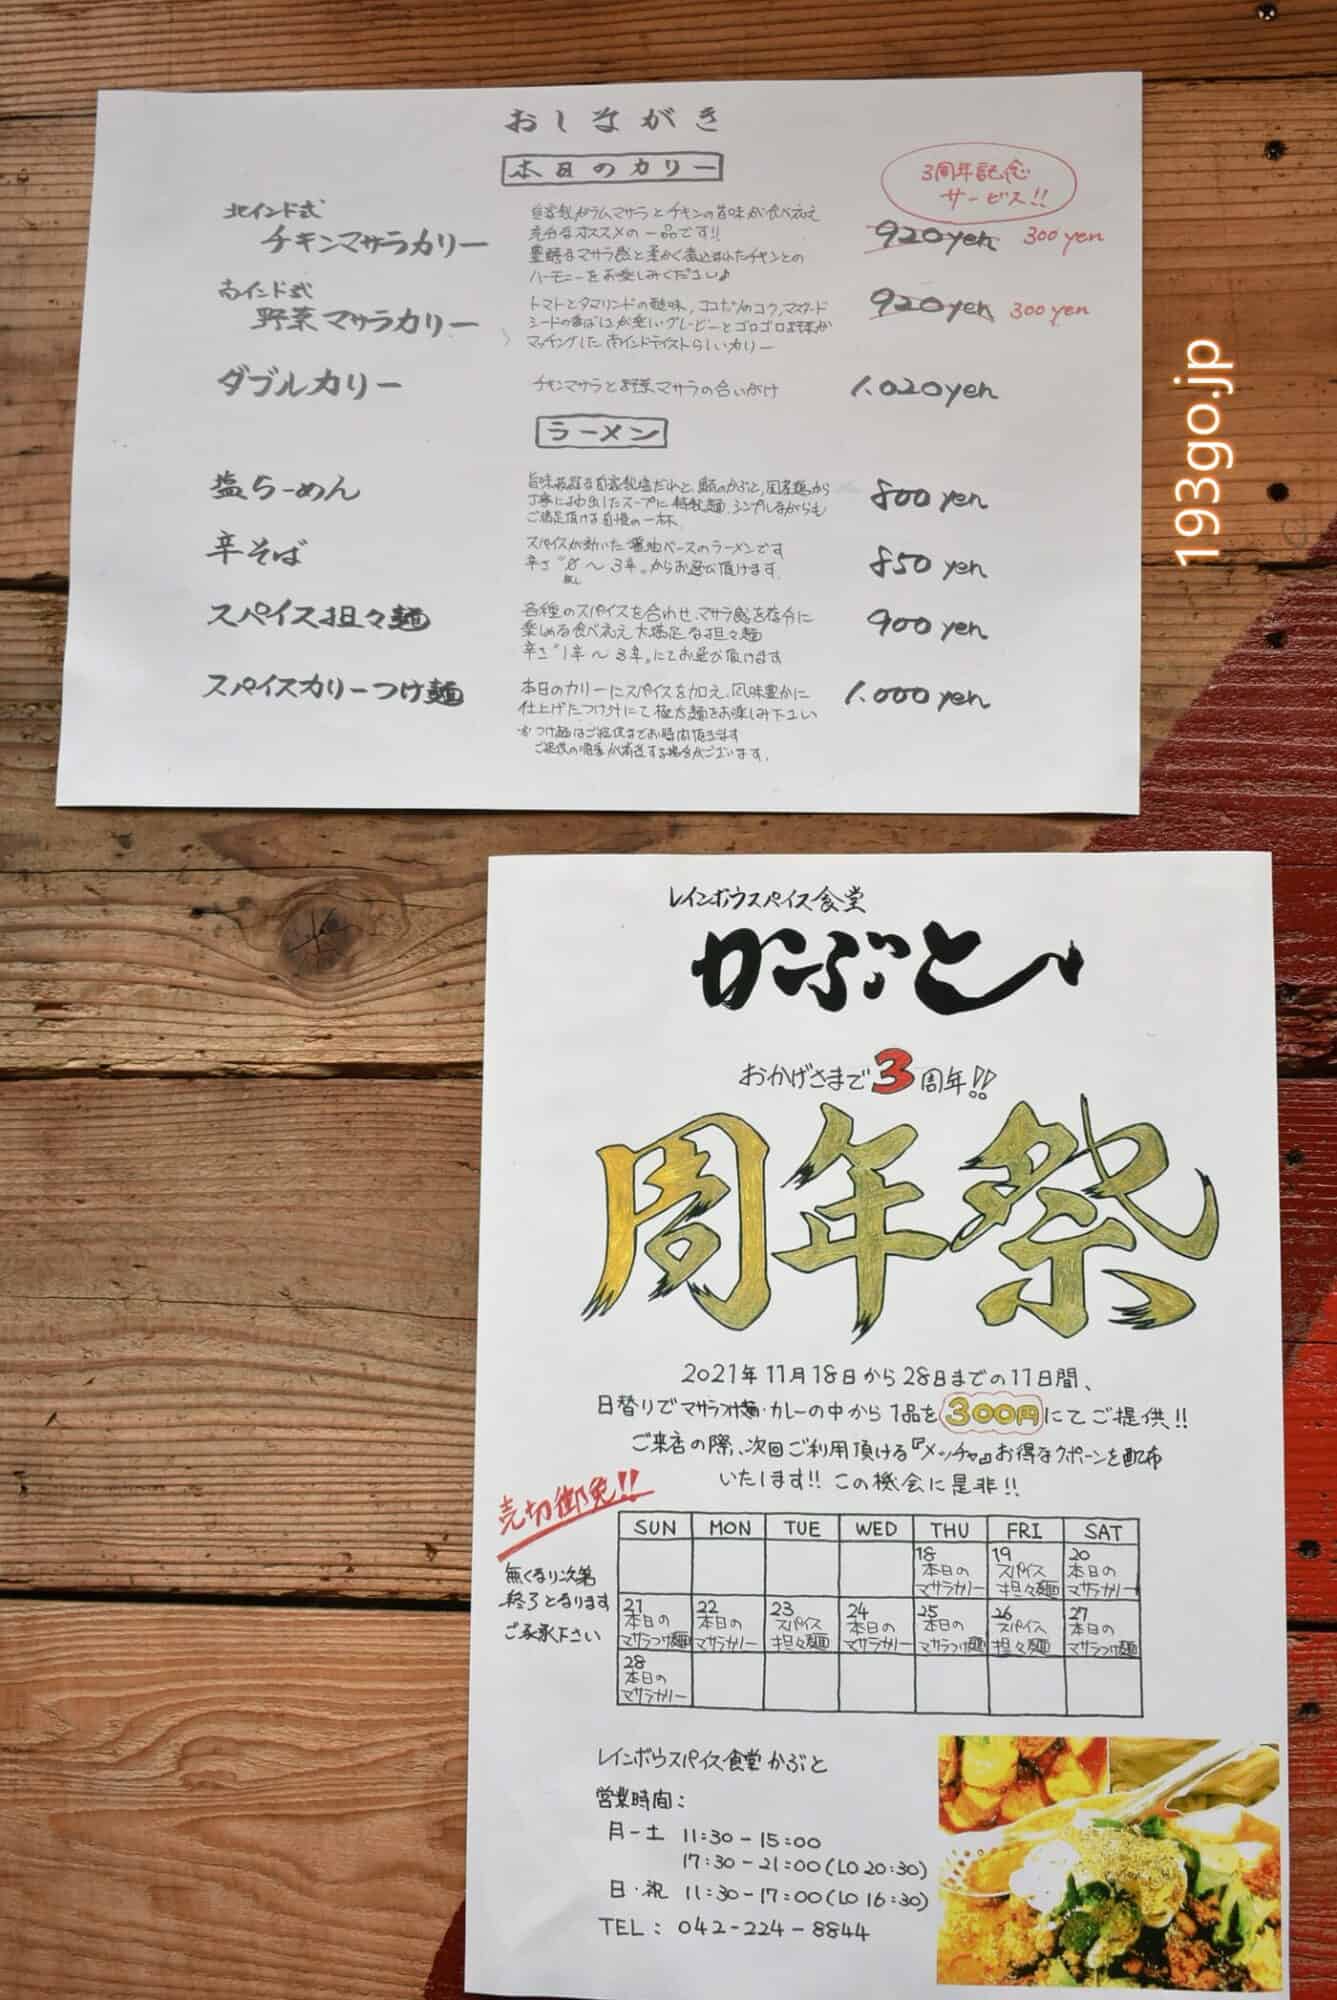 おしながき
本日のカリー
3周年記念
サービス!!
北インド式
チキンマサラカリー
自家製ガラムマサラとチキンの旨味が食べ応え
充分なオススメの一品です!!
豊醇なマサラ感と柔かく煮込まれたチキンとの
ハーモニーをお楽しみください♪
920yen 300yen
南インド式
野菜マサラカリー
トマトとタマリンドの酸味,ココナツのコク,マスタード
シードの香ばしさが楽しいグレービーとゴロゴロお野菜が
マッチングした南インドテイストらしいカリー
920yen 300yen
ダブルカリー
チキンマサラとお野菜マサラの合いがけ
1.020yen
ラーメン
塩らーめん
旨味抜群な自家製塩だれと、鮪のかぶと、国産鶏から
丁寧に出したスープに特製麺、シンプルながらも
ご満足頂ける自慢の一杯.
800yen
辛そば
スパイスが効いた醤油ベースのラーメンです
辛さ"0～3辛"からお選び頂けます.
無し
850yen
スパイス担々麺
各種のスパイスを合わせ、マサラ感を存分に
楽しめる食べ応え大満足な担々麺
辛さ"1辛～3辛"にてお選び頂けます
900yen
スパイスカリーつけ麺
本日のカリーにスパイスを加え、風味豊かに
仕上げたつけ汁にて極太麺をお楽しみ下さい
※つけ麺はご提供までお時間頂きます
ご提供の順番が前後する場合がございます.
1.000yen
193go.jp
レインボウスパイス食堂
かぶと
おかげさまで3周年!!
周年祭
2021年11月18日から28日までの11日間、
日替りでマサラつけ麺・カレーの中から1品を300円にてご提供!!
ご来店の際、次回ご利用頂ける『メッチャ』お得なクポーンを配布
いたします!! この機会に是非!!
売切御免!!
無くなり次第
終了となります
ご了承下さい
SUN MON TUE WED THU FRI SAT
18 本日のマサラカリー
19 スパイス担々麺
20 本日のマサラカリー
21 本日のマサラつけ麺
22 本日のマサラカリー
23 スパイス担々麺
24 本日のマサラカリー
25 本日のマサラつけ麺
26 スパイス担々麺
27 本日のマサラつけ麺
28 本日のマサラカリー
レインボウスパイス食堂 かぶと
営業時間:
月－土 11:30－15:00
17:30－21:00(LO 20:30)
日・祝 11:30－17:00(LO 16:30)
TEL: 042-224-8844